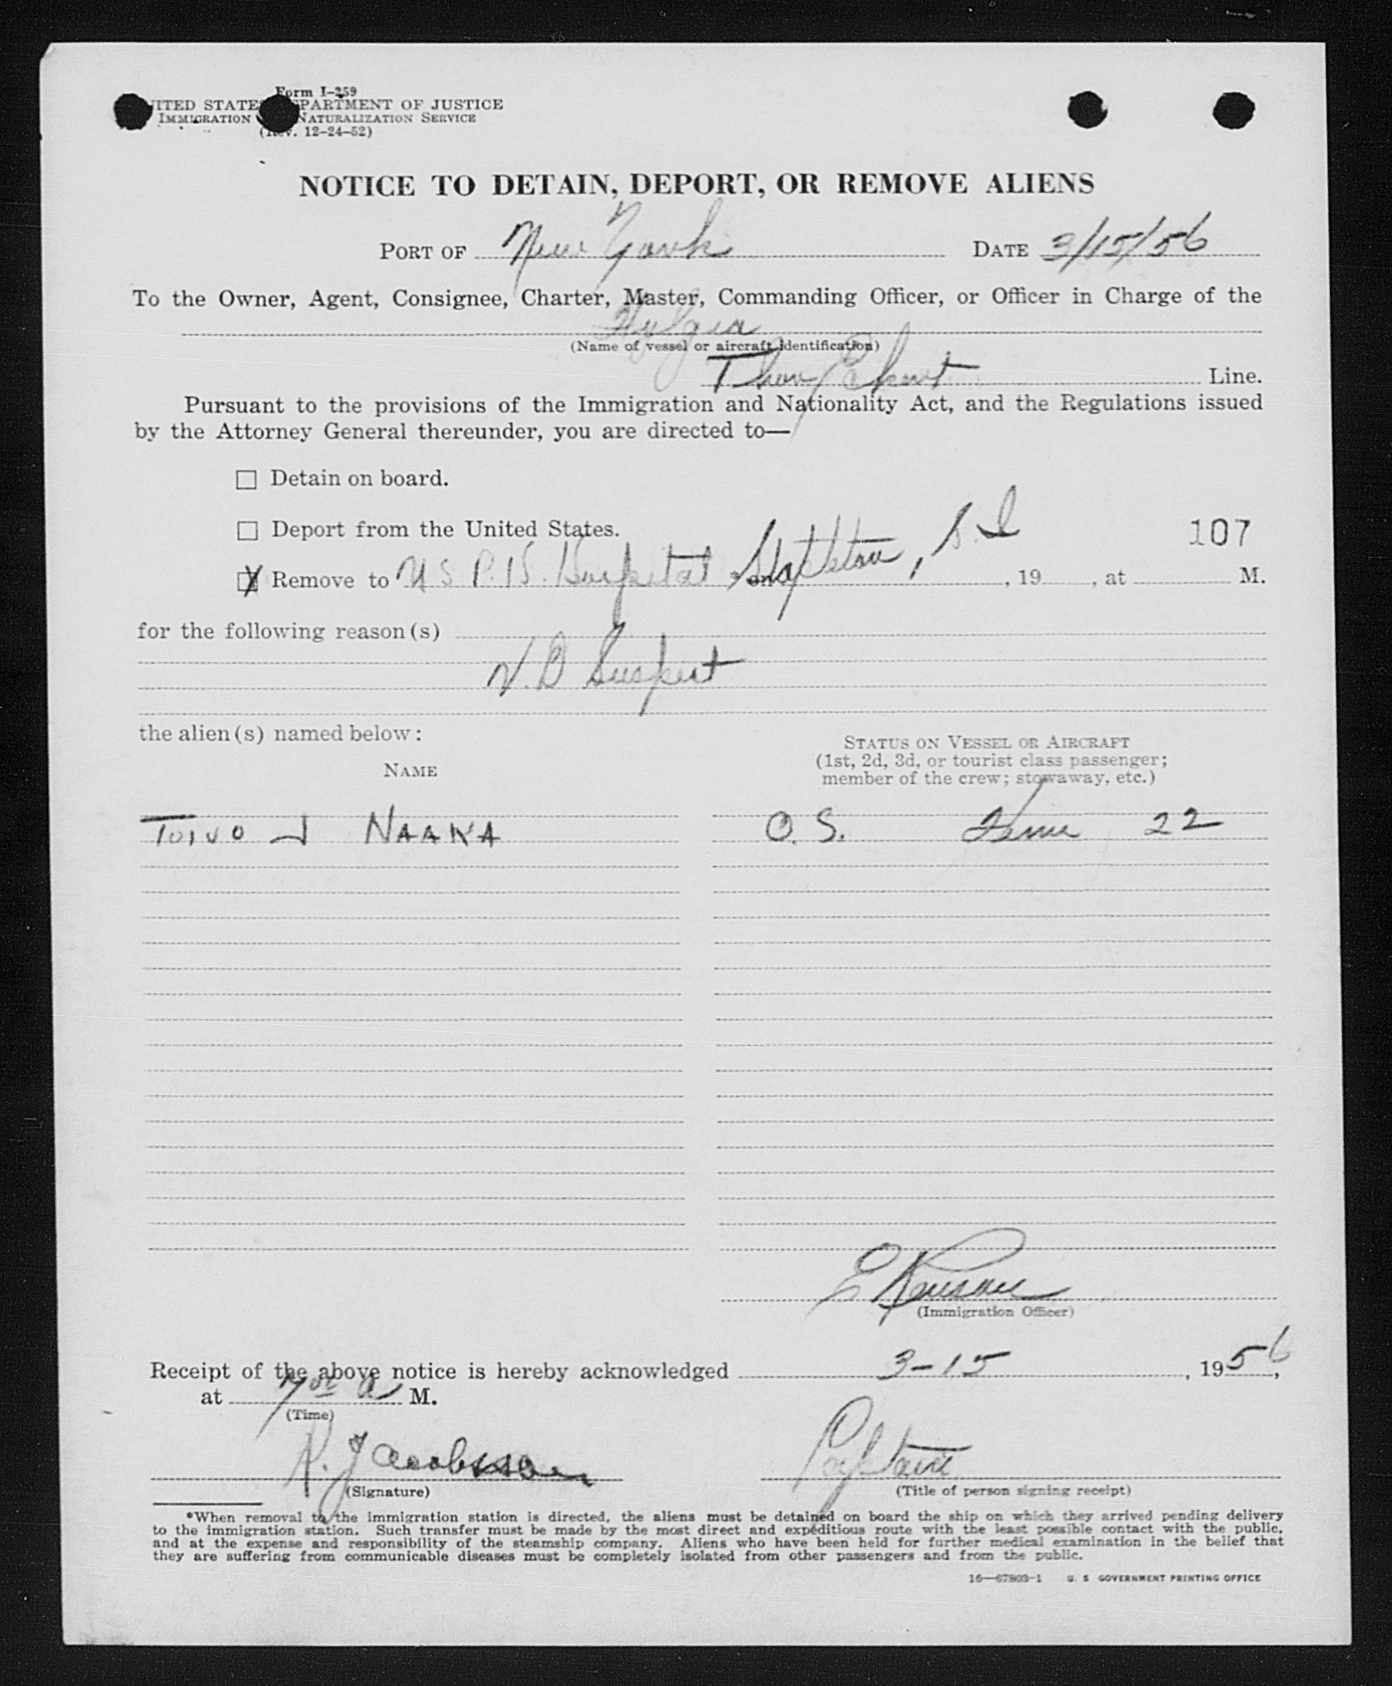 Form I-259
UNITED STATES DEPARTMENT OF JUSTICE
IMMIGRATION NATURALIZATION SERVICE
(Rev. 12-24-52)
NOTICE TO DETAIN, DEPORT, OR REMOVE ALIENS
PORT OF New York DATE 3/15/56
To the Owner, Agent, Consignee, Charter, Master, Commanding Officer, or Officer in Charge of the
(Name of vessel or aircraft identification)
Thor Line.
Pursuant to the provisions of the Immigration and Nationality Act, and the Regulations issued
by the Attorney General thereunder, you are directed to—
☐ Detain on board.
☐ Deport from the United States.
107
☒ Remove to U S P. H. Hospital on Stapleton, S. I , 19 , at M.
for the following reason(s)
V. D Suspect
the alien(s) named below:
STATUS ON VESSEL OR AIRCRAFT
(1st, 2d, 3d, or tourist class passenger;
member of the crew; stowaway, etc.)
NAME
TOIVO J NAAKA O. S. 22
E
(Immigration Officer)
Receipt of the above notice is hereby acknowledged 3-15, 1956,
at A M.
(Time)
R. Jacobsson Captain
(Signature) (Title of person signing receipt)
*When removal to the immigration station is directed, the aliens must be detained on board the ship on which they arrived pending delivery
to the immigration station. Such transfer must be made by the most direct and expeditious route with the least possible contact with the public,
and at the expense and responsibility of the steamship company. Aliens who have been held for further medical examination in the belief that
they are suffering from communicable diseases must be completely isolated from other passengers and from the public.
16—67803-1 U. S GOVERNMENT PRINTING OFFICE